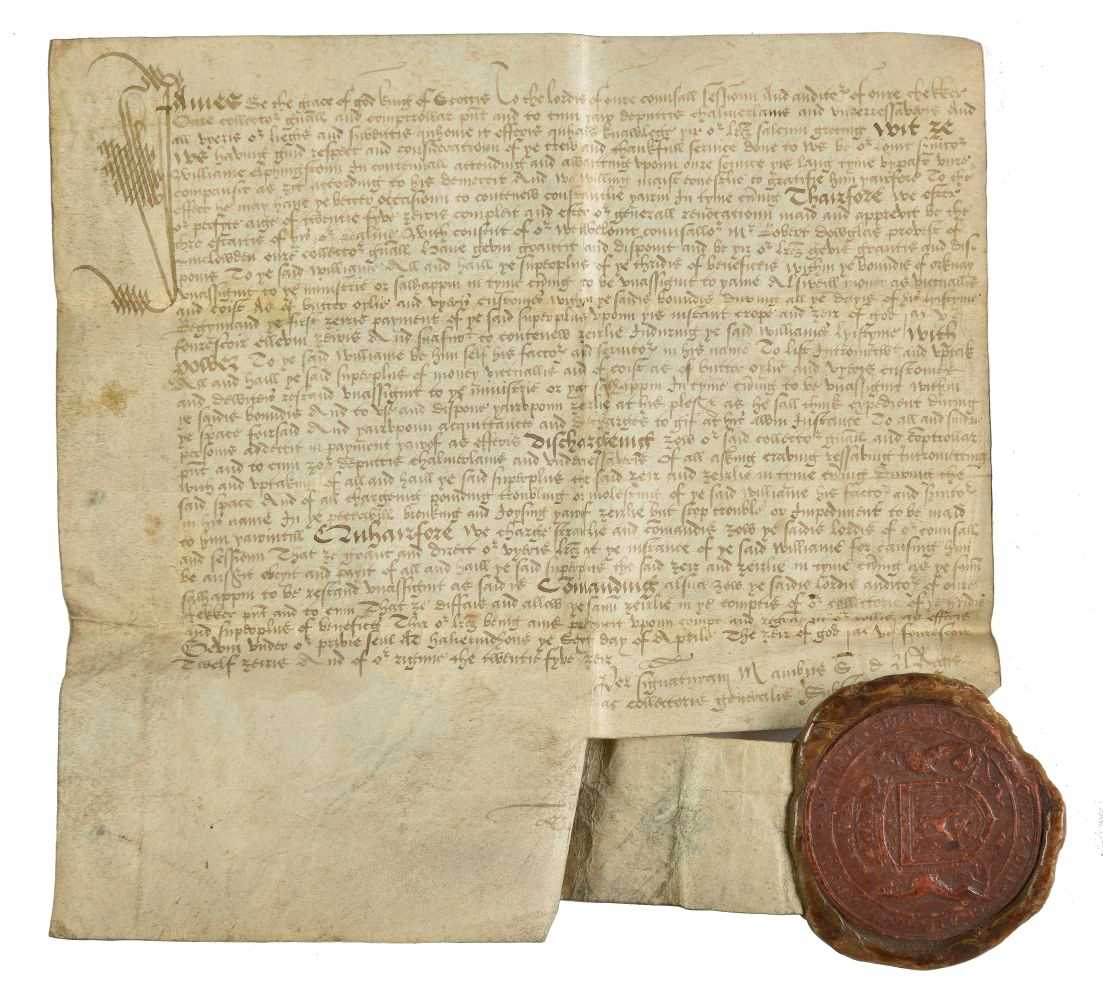 James Be the grace of god king of Scottis To the lordis of oure counsall sessioun And auditoʳ of oure chekker
Oure collectoʳ gñall and comptrollar pñt and to cum yair deputtis chalmerlanis and vnderressavaris And
all vyeris oʳ liegis and subditis quhome it efferis quhais knawlege yir oʳ lr̃ez salcum greting Wit ze
We having gud respect and consideratioun of ye trew and thankfull service done to ws be oʳ louit suitoʳ
Williame Elphingstoun In continuall attending and awaitting vpoun oure service yis lang tyme bypast vnre
compansit as zit according to his demereit And we willing maist ernestlie to gratifie him yairfore To the
effect he may haue ye better occasioun to contenew constantlie yairin In tyme cũing Thairfore we efter
oʳ perfyte aige of twentie fyve zeiris compleit and efter oʳ generall revocatioun maid and apprevit be the
thre estaitis of yis oʳ realme With consent of oʳ weilbelouit counsalloʳ Mʳ Robert Dowglas provest of
Linclowden oure collectoʳ gñall Haue gevin grantit and disponit and be yir oʳ lr̃ez gevis grantis and dis-
ponis To ye said Williame All and haill ye superplus of ye thridis of beneficeis within ye boundis of orknay
vnassignit to ye ministrie or salhappin in tyme cũing to be vnassignit to yame Alsweill money as victuallis
and coist As of butter oylie and vyeris customes within ye saidis boundis during all ye dayis of his lyftyme
Begynnand ye first zeiris payment of ye said superplus vpoun yis instant crope and zeir of god jai vᶜ
fourescoir ellevin zeiris And sua furᵗ to contenew zeirlie Induring ye said Williames lyftyme With
power To ye said Williame be him self his factoʳ and seruitoʳ in his name To lift Intromettᵗ and vptak
All and haill ye said superplus of money victuallis and of coist as of butter oylie and vyeris customes
and dewiteis restand vnassignit to ye ministrie or yat salhappin In tyme cũing to be vnassignit within
ye saidis boundis And to vse and dispone yairvpoun zeirlie at his plesʳ as he sall think expedient during
ye space foirsaid And yairvpoun acquittances and discharges to gif at his awin Instance To all and sindry
personis addettit in payment yairof as efferis Dischargeing zow oʳ said collectoʳ gñall and comptrollar
pñt and to cum zoʳ deputtis chalmerlanis and vnderressavaris Of all asking craving ressaving Intrometting
with and vptaking of all and haill ye said superplus ye said zeir and zeirlie in tyme cũing During the
said space And of all chargeing poinding troubling or molesting of ye said Williame his factoʳ and suitoʳ
in his name In ye peceabill brouking and Joysing yairof zeirlie but stop trouble or Impediment to be maid
to him yairintill Quhairfore We charge straitlie and comandis zow ye saidis lordis of oʳ counsall
and sessioun That ze grant and direct oʳ vyeris lr̃ez at ye instance of ye said Williame for causing him
be ansrit obeyit and payit of all and haill ye said superplus the said zeir and zeirlie in tyme cũing as ye samin
salhappin to be restand vnassignit as said is Comanding alsua zow ye saidis lordis auditoʳ of oure
chekker pñt and to cum That ze defais and allow ye samin zeirlie in ye comptis of oʳ collectorie of ye thridis
and superplus of beneficeis Thir oʳ lr̃ez being anis producit vpoun compt and registrat in oʳ rollis as efferis
Gevin vnder oʳ privie seill At halierudhous ye day of Aprile The zeir of god jai vᶜ fourescoir
Twelf zeiris And of oʳ regime the twentie fyve zeir
Per signaturam Manibus S. d. n. Regis
ac collectoris generalis